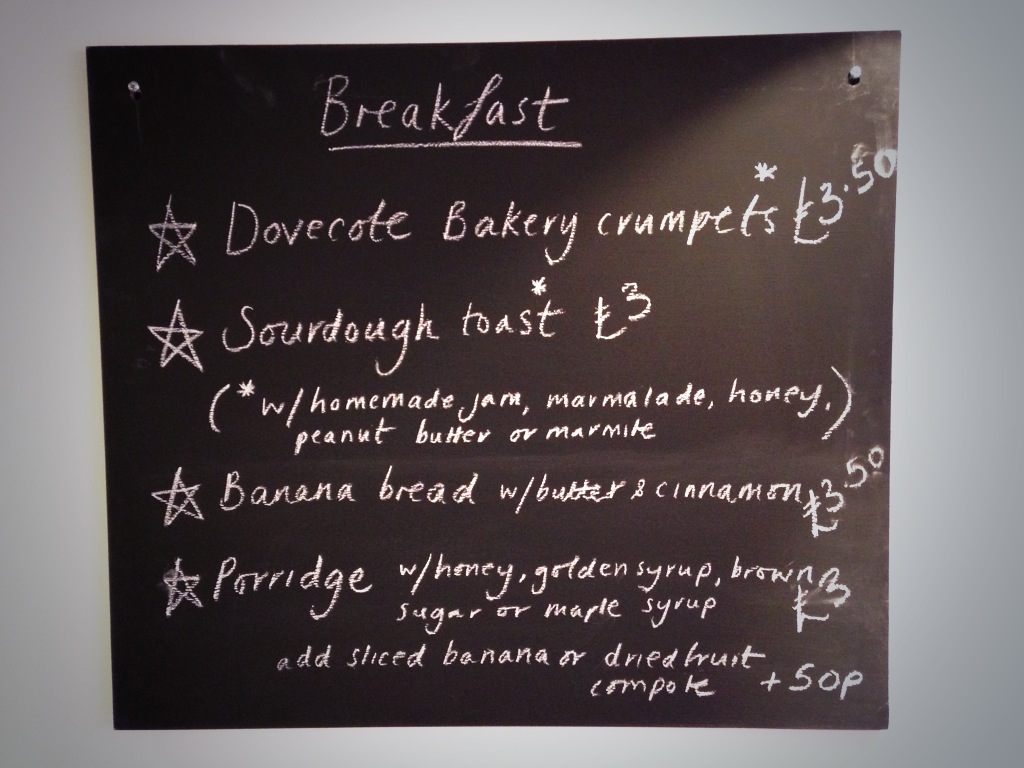 Breakfast
Dovecote Bakery crumpets* £3.50
Sourdough toast* £3
(*w/homemade jam, marmalade, honey,)
peanut butter or marmite
Banana bread w/butter & cinnamon £3.50
Porridge w/honey, golden syrup, brown £3
sugar or maple syrup
add sliced banana or dried fruit
compote +50p